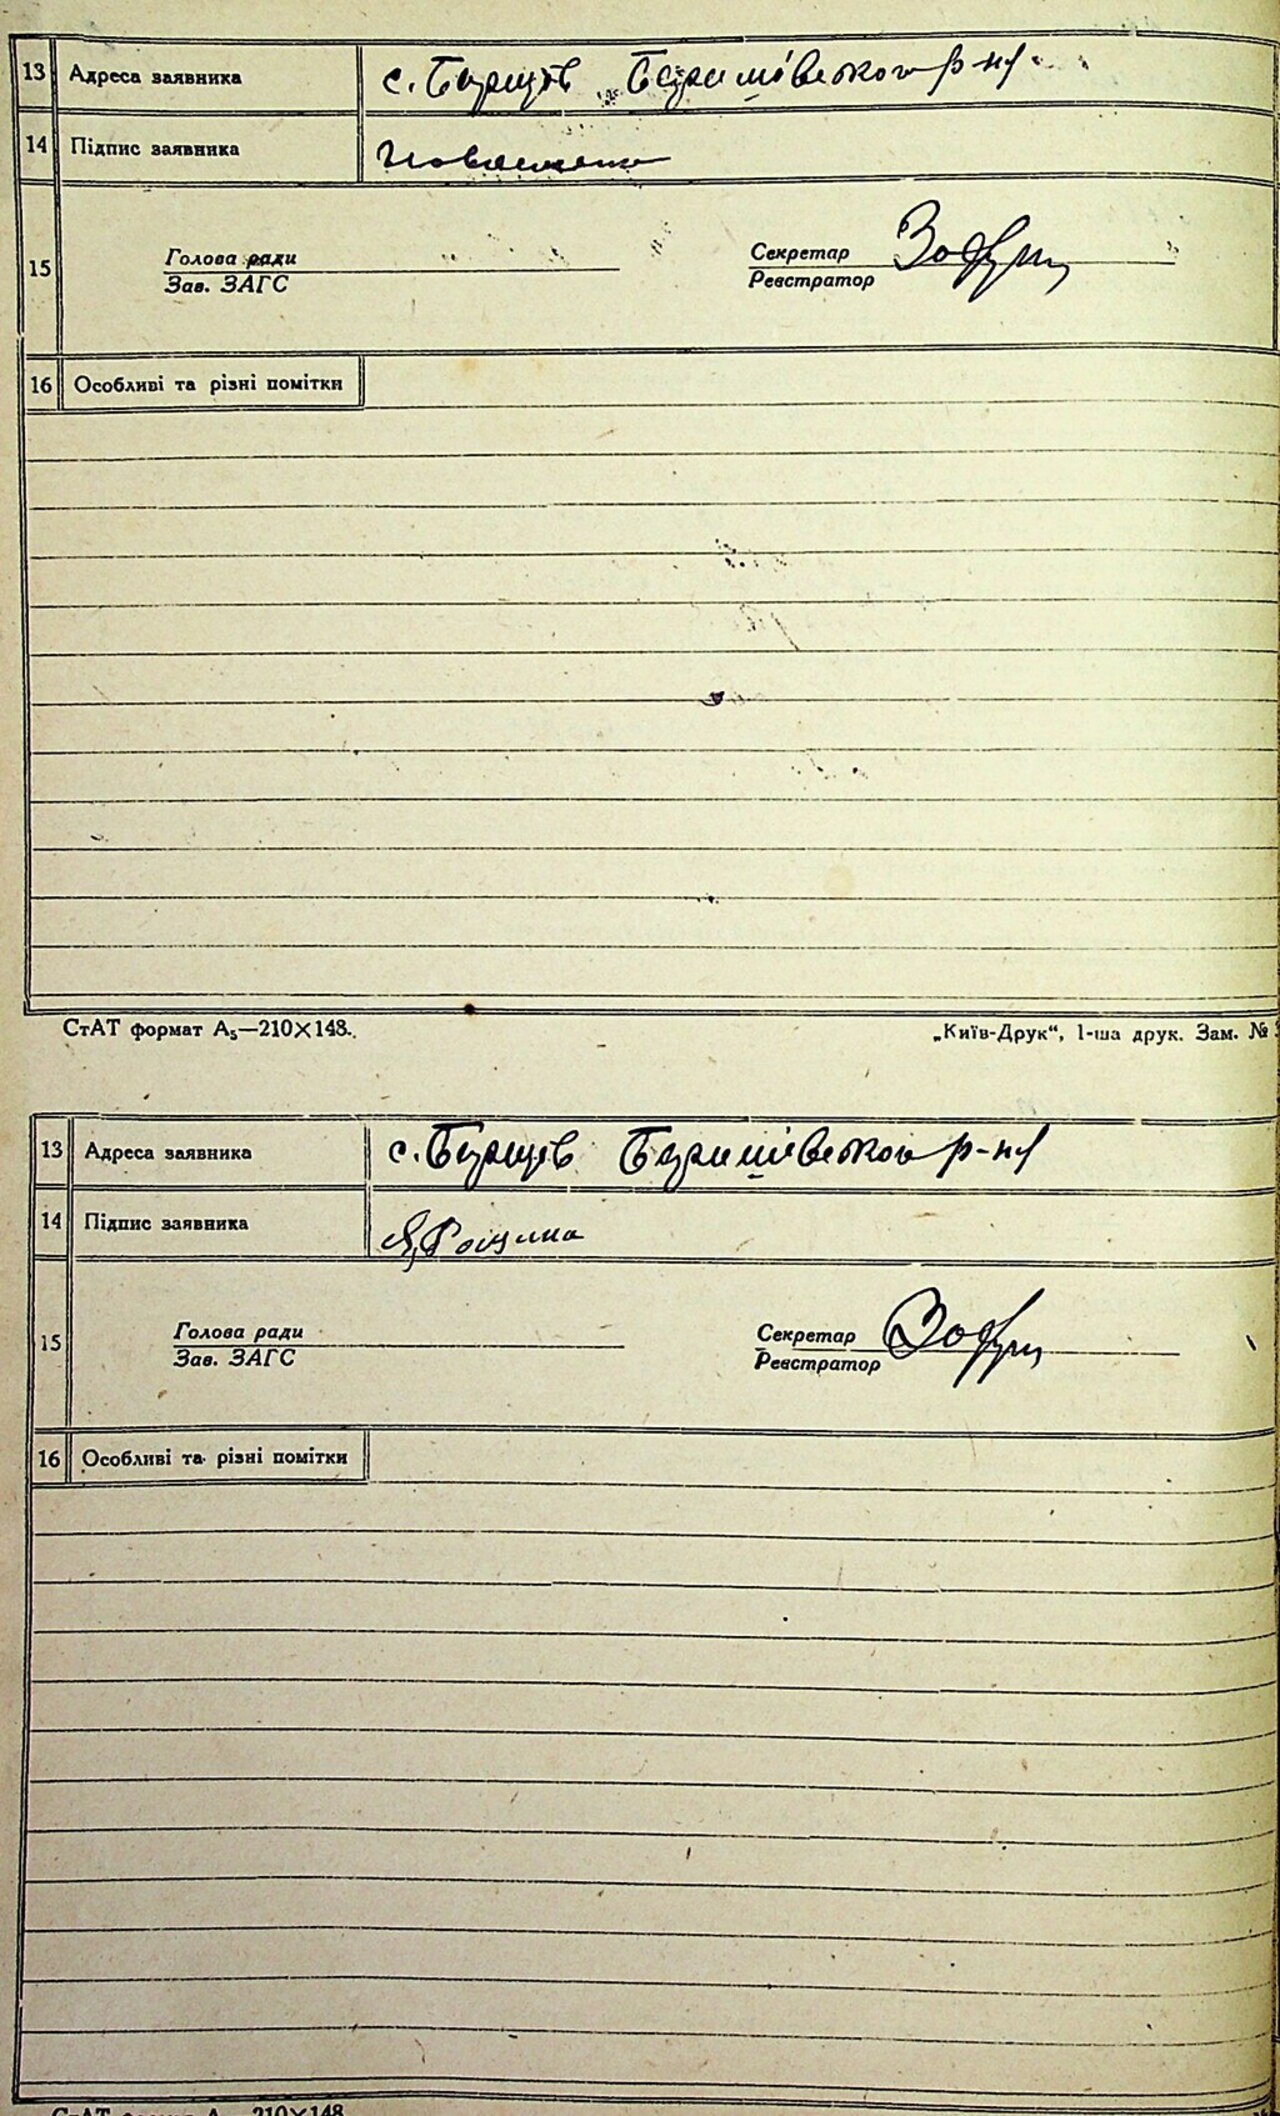 13 Адреса заявника с. Борщів Баришівського р-ну
14 Підпис заявника
15 Голова ради Секретар
Зав. ЗАГС Реєстратор
16 Особливі та різні помітки
СтАТ формат А₅—210×148. „Київ-Друк“, 1-ша друк. Зам. №
13 Адреса заявника с. Борщів Баришівського р-ну
14 Підпис заявника
15 Голова ради Секретар
Зав. ЗАГС Реєстратор
16 Особливі та різні помітки
СтАТ формат А₅—210×148